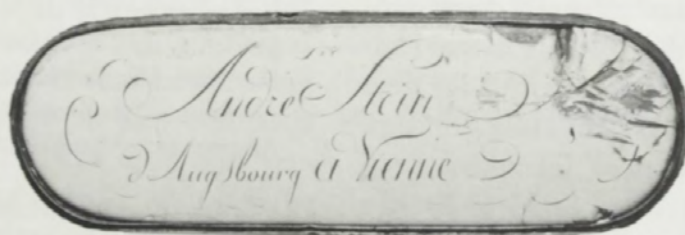 André Stein
d'Augsbourg à Vienne